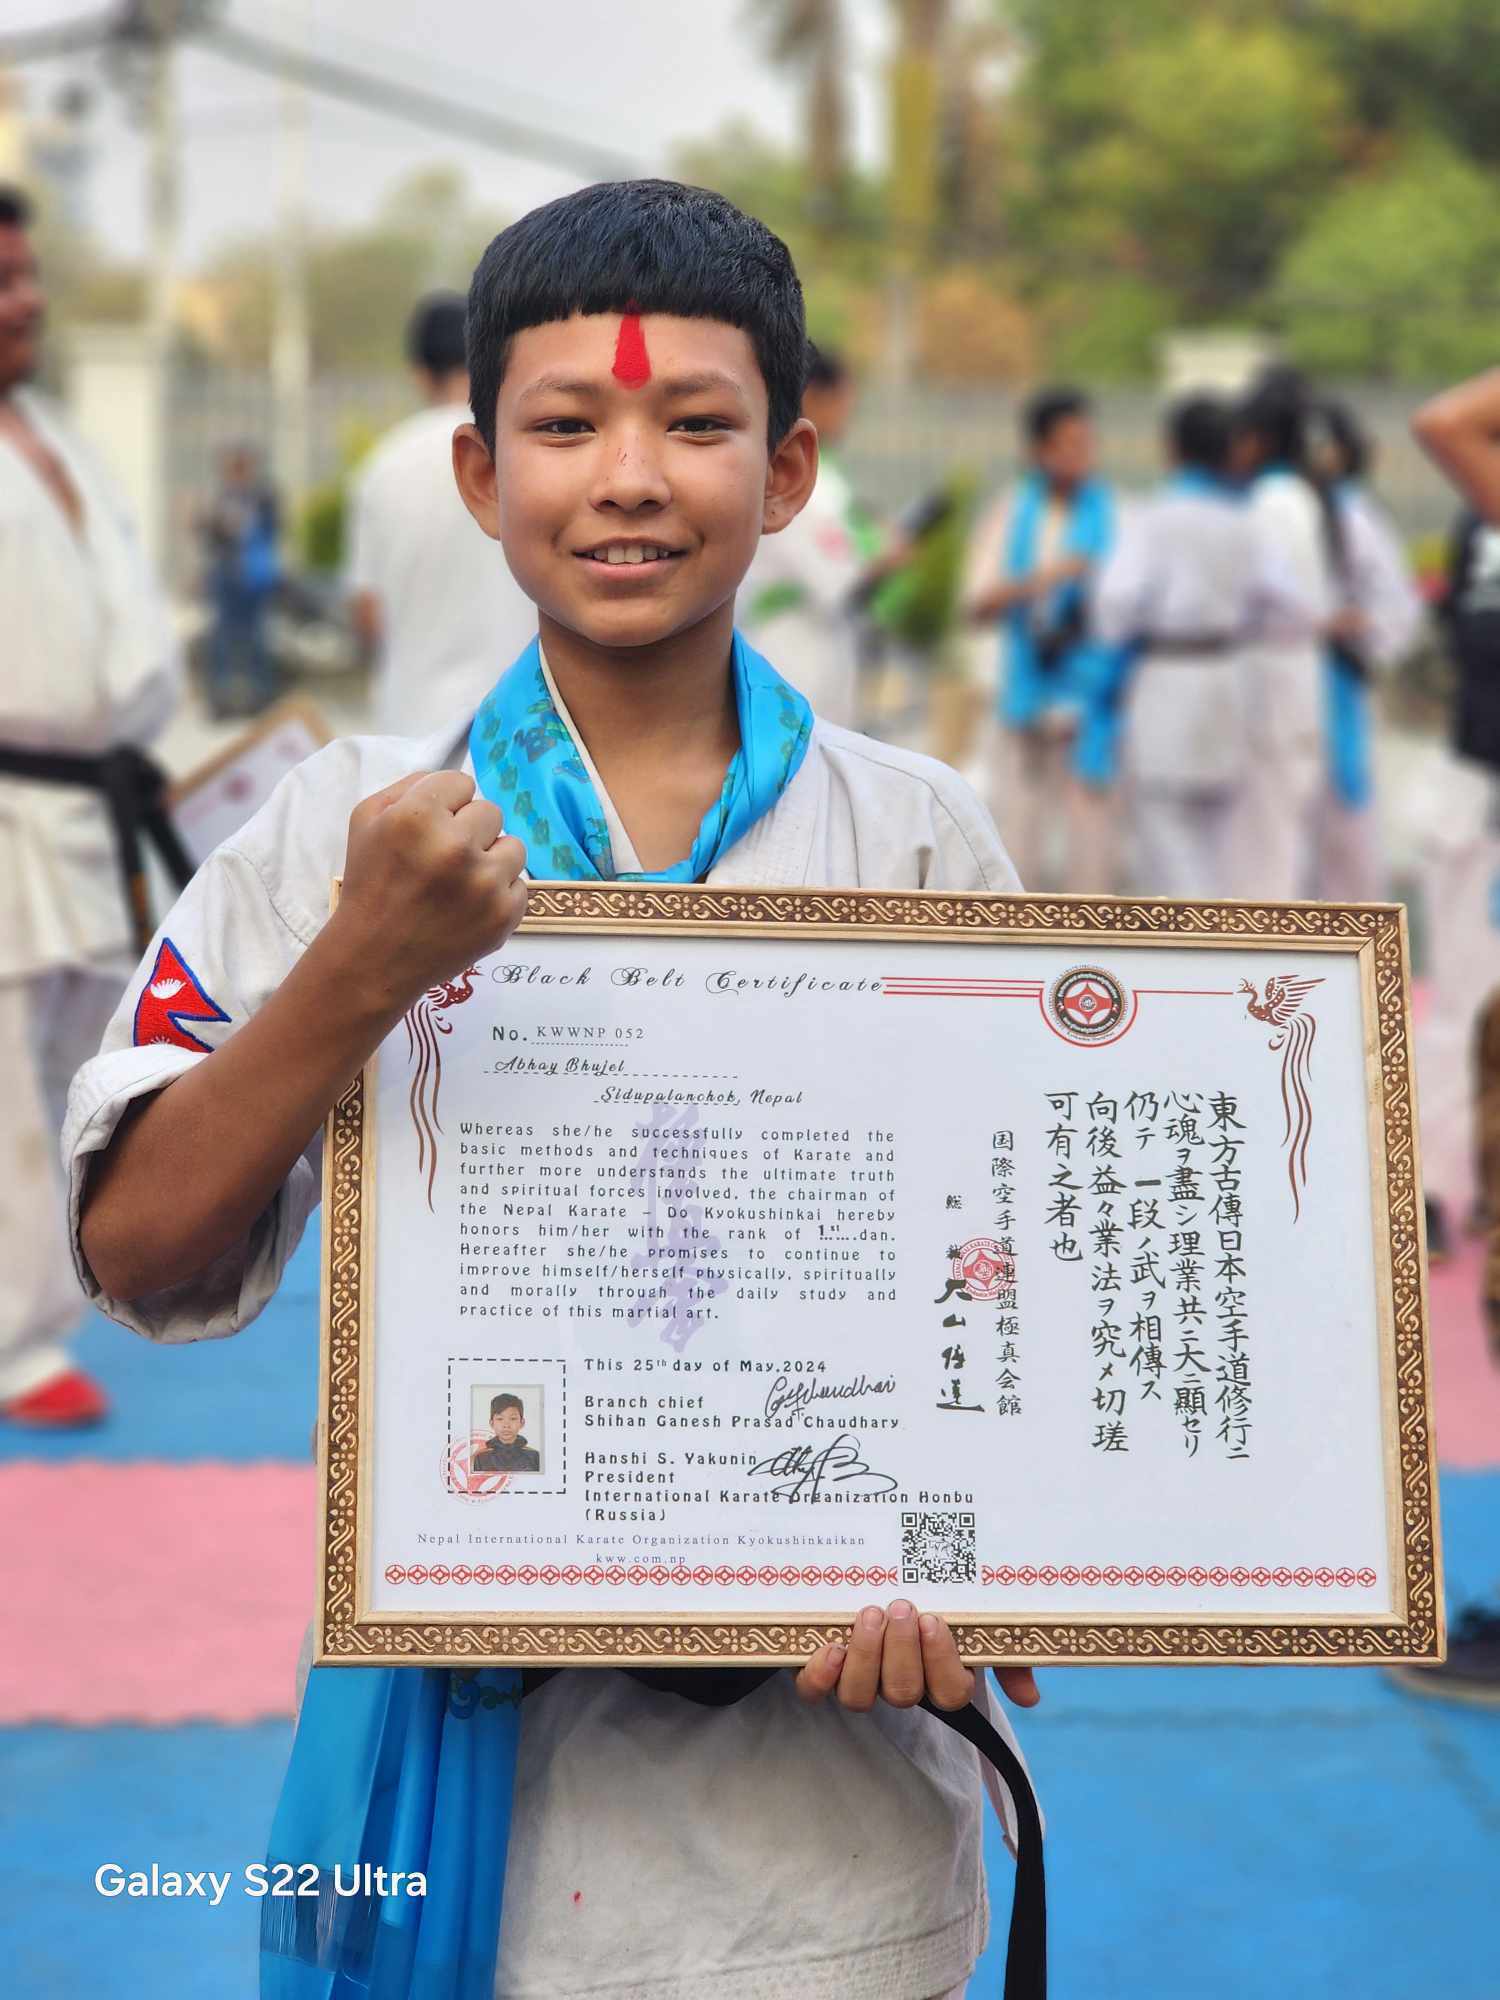 Black Belt Certificate
No. KWWNP 052
Abhay Bhujel
Sidupalanchok, Nepal
Whereas she/he successfully completed the
basic methods and techniques of Karate and
further more understands the ultimate truth
and spiritual forces involved, the chairman of
the Nepal Karate – Do Kyokushinkai hereby
honors him/her with the rank of 1st dan.
Hereafter she/he promises to continue to
improve himself/herself physically, spiritually
and morally through the daily study and
practice of this martial art.
This 25th day of May,2024
Branch chief
Shihan Ganesh Prasad Chaudhary
Hanshi S. Yakunin
President
International Karate Organization Honbu
(Russia)
Nepal International Karate Organization Kyokushinkaikan
kww.com.np
東方古傳日本空手道修行ニ
心魂ヲ盡シ理業共ニ大ニ顯セリ
仍テ一段ノ武ヲ相傳ス
向後益々業法ヲ究メ切瑳
可有之者也
国際空手道連盟極真会館
総
大山倍達
Galaxy S22 Ultra